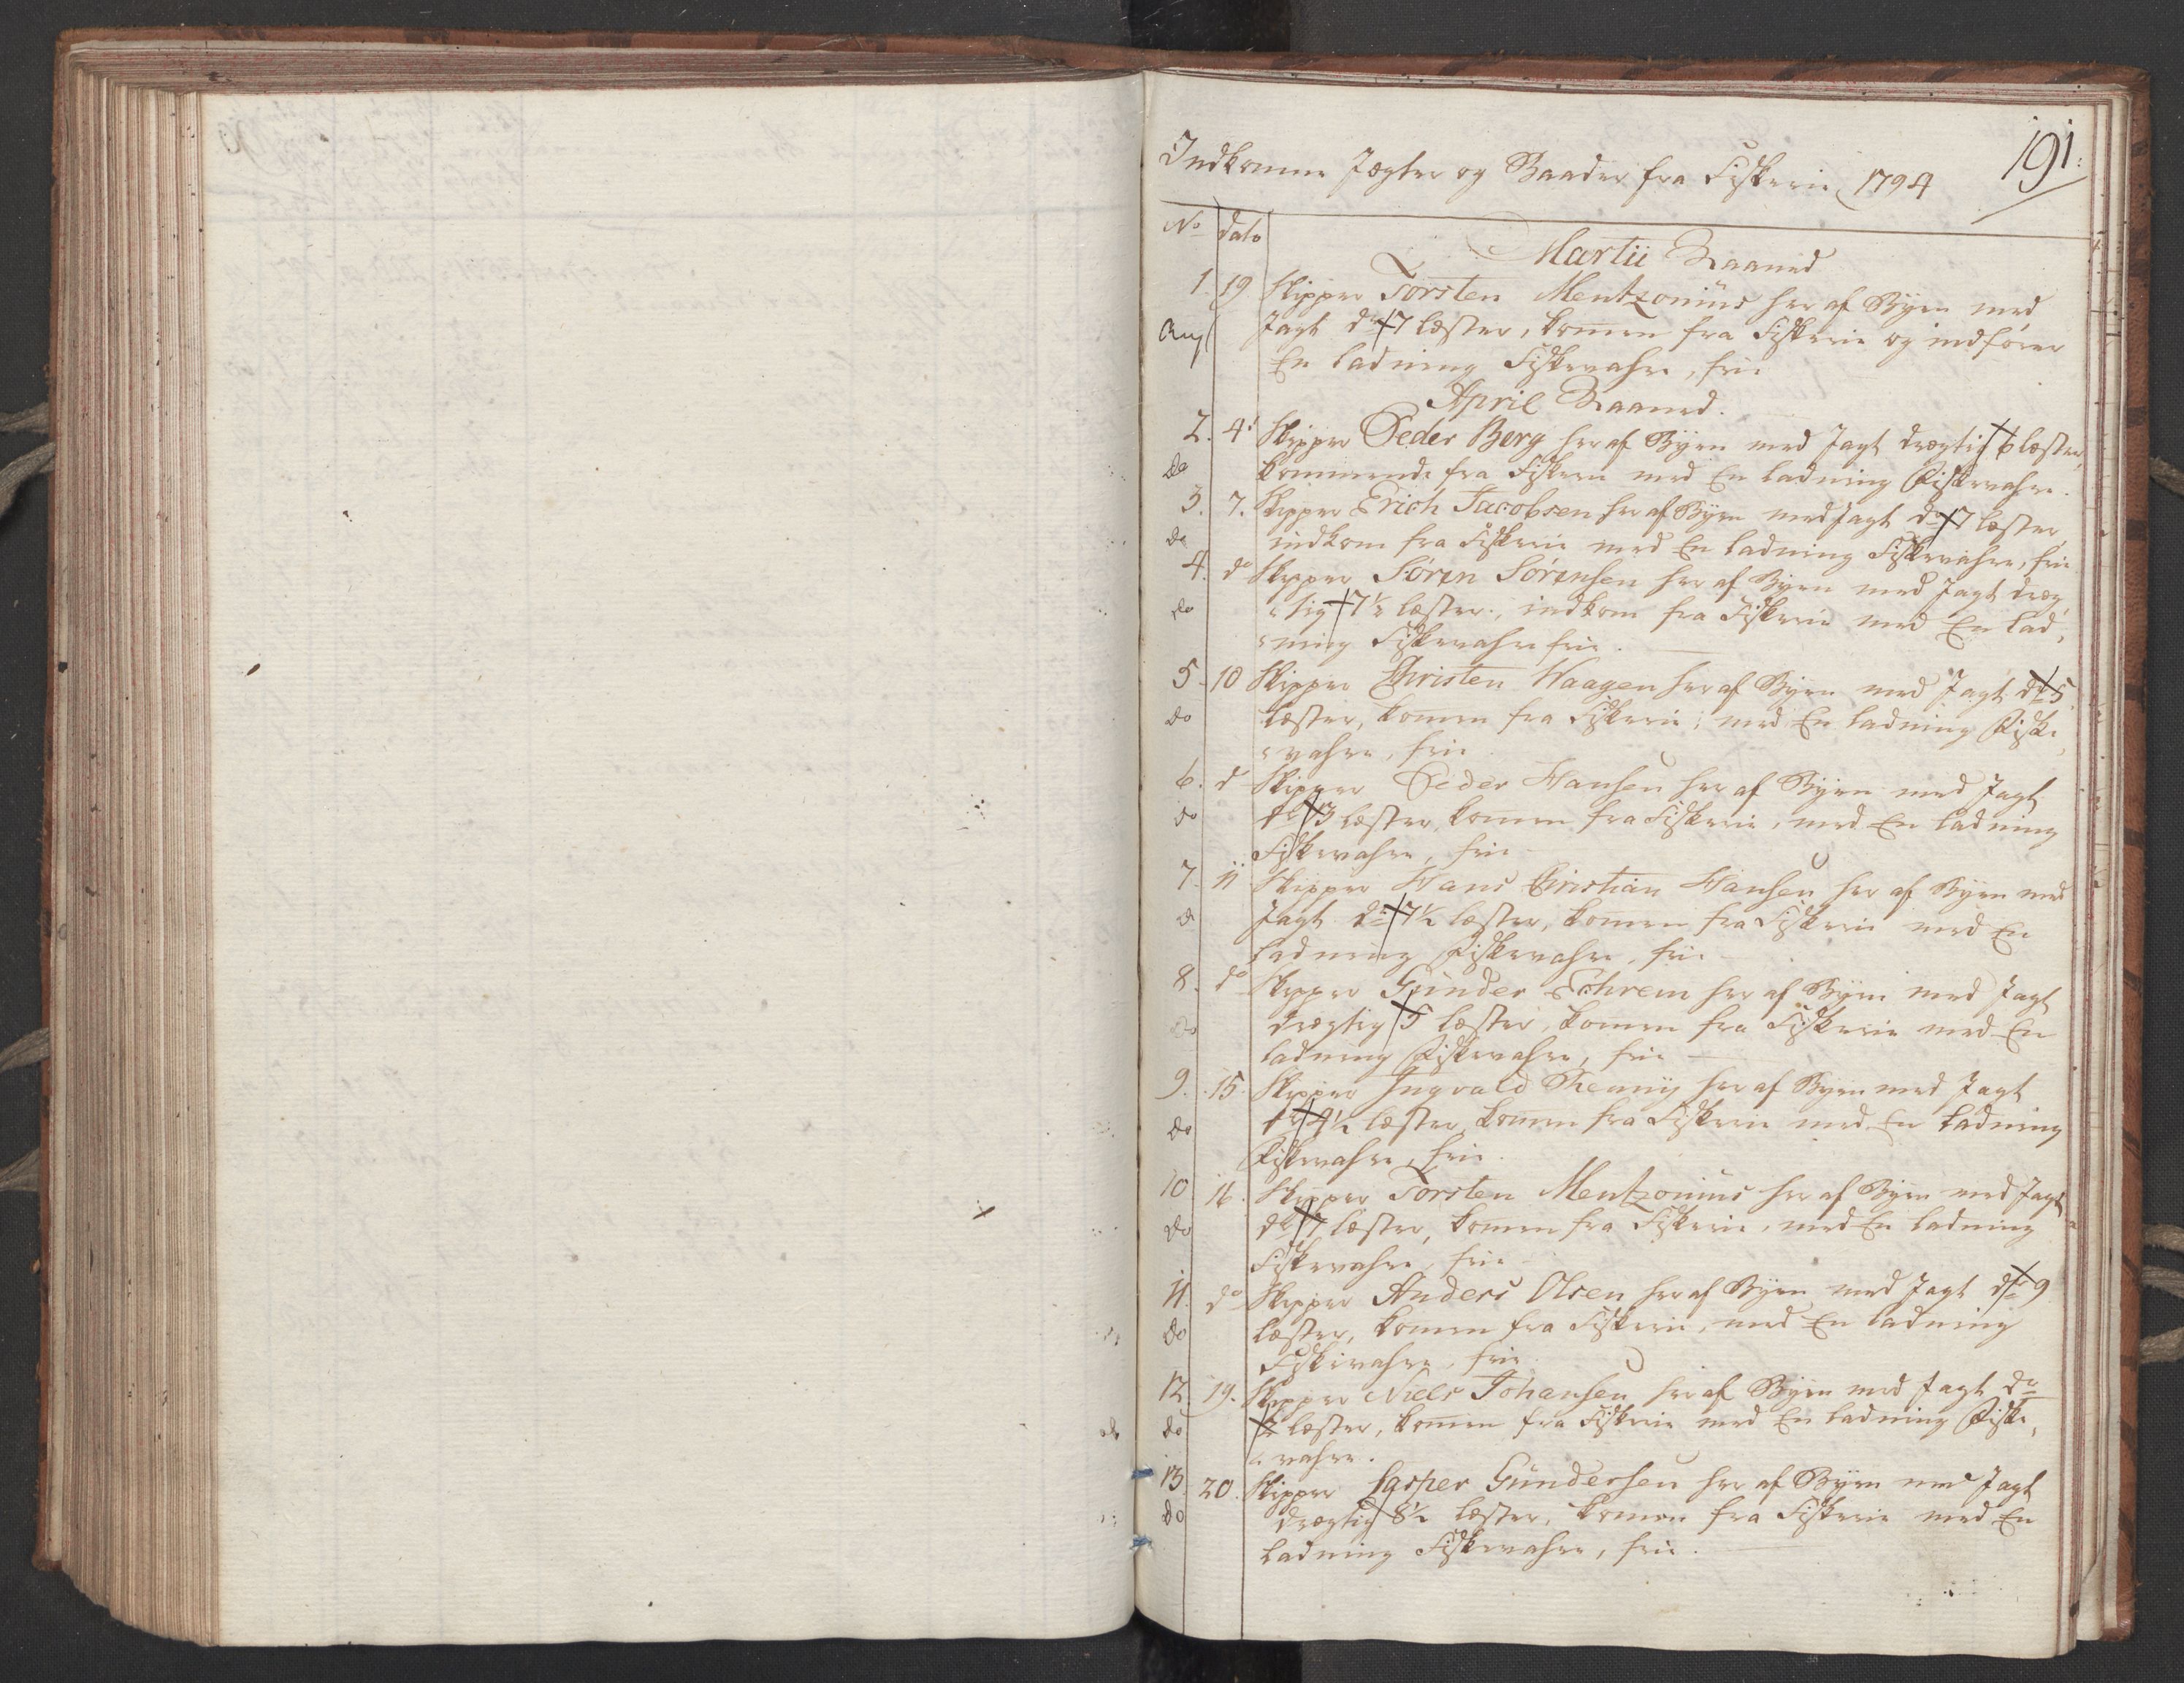 191.
Indkomne Jægter og Baader fra Fiskerie 1794
No dato
Martii Maaned
1. 19 Skipper Torsten Mentzonius her af Byen med
Jagt dr. 7 læster, komen fra Fiskerie og indfører
En ladning Fiskevahre, frie
April Maaned.
2. 4. Skipper Peder Berg her af Byen med Jagt drægtig 6 læster,
do kommende fra Fiskerie med En ladning Fiskevahre.
3. 7. Skipper Erich Jacobsen her af Byen med Jagt dr. 7 læster,
do indkom fra Fiskerie med En ladning Fiskevahre, frie
4. do Skipper Søren Sørensen her af Byen med Jagt dræg,
do tig 7½ læster, indkom fra Fiskerie med En lad,
ning Fiskevahre frie.
5. 10 Skipper Christen Waagen her af Byen med Jagt dr. 5
do læster, komen fra Fiskerie, med En ladning Fiske,
vahre, frie
6. do Skipper Peder Hansen her af Byen med Jagt
do dr. 3 læster, komen fra Fiskerie, med En ladning
Fiskevahre, frie
7. 11 Skipper Hans Christian Hansen her af Byen med
do Jagt dr. 7½ læster, komen fra Fiskerie med En
ladning Fiskevahre, frie
8. do Skipper Gunder Echrem her af Byen med Jagt
do drægtig 5 læster, komen fra Fiskerie med En
ladning Fiskevahre, frie
9. 15. Skipper Ingvald her af Byen med Jagt
do dr. 4½ læster, komen fra Fiskerie med En ladning
Fiskevahre, frie.
10 16. Skipper Torsten Mentzonius her af Byen med Jagt
do dr. 7 læster, komen fra Fiskerie, med En ladning
Fiskevahre, frie
11. do Skipper Anders Olsen her af Byen med Jagt dr. 9
do læster, komen fra Fiskerie, med En ladning
Fiskevahre, frie
12. 19. Skipper Niels Johansen her af Byen med Jagt dr.
do læster, komen fra Fiskerie med En ladning Fiske,
vahre.
13 20. Skipper Casper Gundersen her af Byen med Jagt
do drægtig 8½ læster, komen fra Fiskerie med En
ladning Fiskevahre, frie.